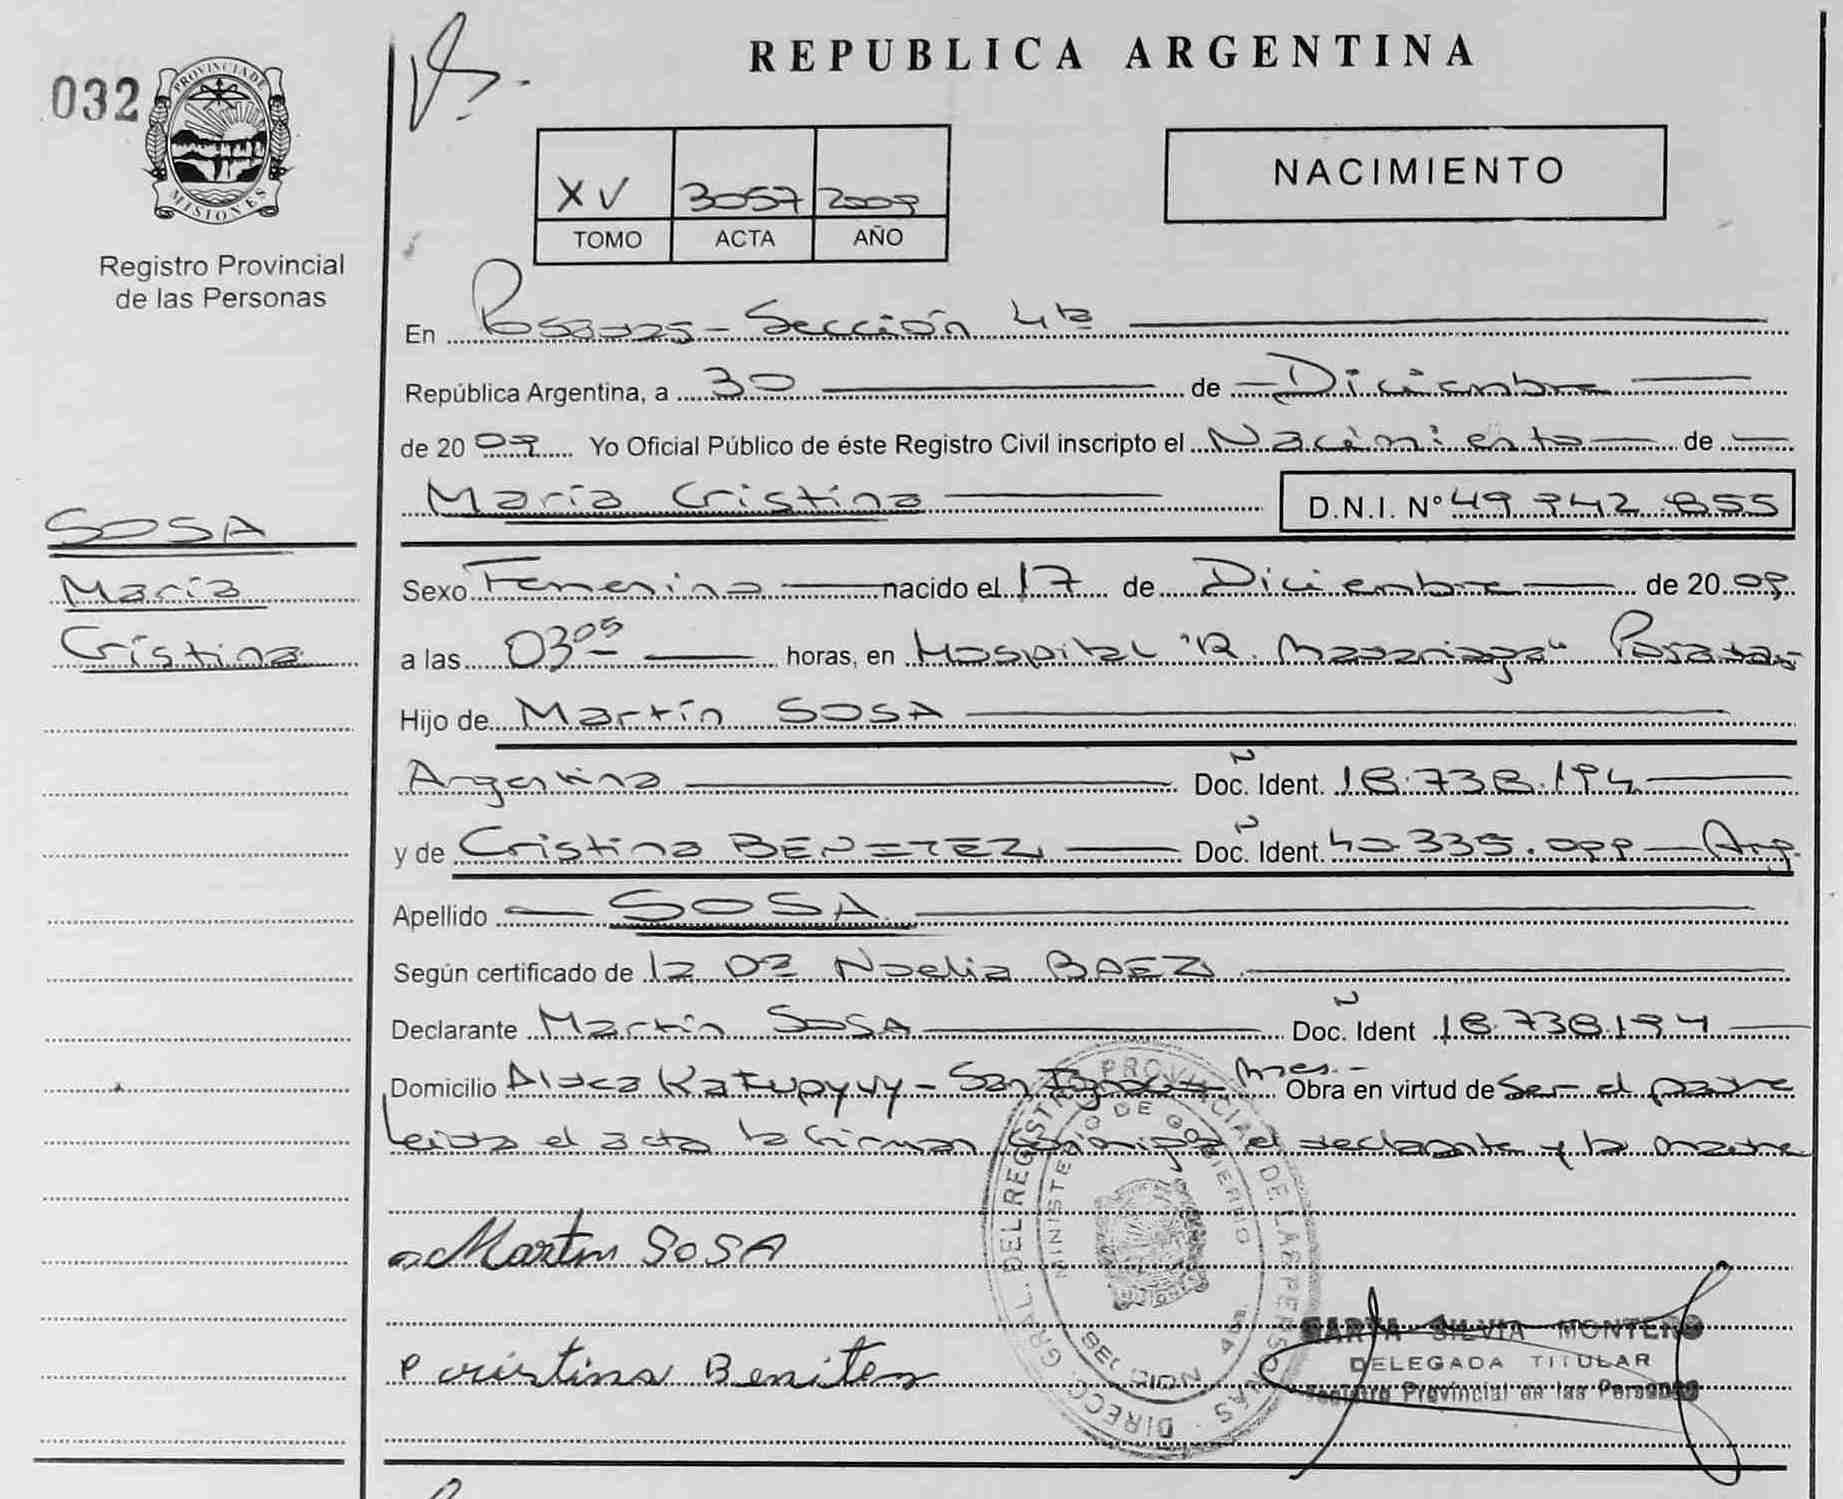 032
PROVINCIA DE
MISIONES
Registro Provincial
de las Personas
REPUBLICA ARGENTINA
XV 3057 2009
TOMO ACTA AÑO
NACIMIENTO
En Posadas - Sección 4ta
República Argentina, a 30 de Diciembre
de 20 09 Yo Oficial Público de éste Registro Civil inscripto el Nacimiento de
María Cristina D.N.I. Nº 49.742.855
SOSA
María
Cristina
Sexo Femenino nacido el 17 de Diciembre de 20 09
a las 03 05 horas, en Hospital "R. Madariaga" Posadas
Hijo de Martín SOSA
Argentina Doc. Ident. Nº 18.738.194
y de Cristina BENITEZ Doc. Ident. Nº 40.335.099 Arg.
Apellido SOSA
Según certificado de la Dra Noelia BAEZ
Declarante Martín SOSA Doc. Ident Nº 18.738.194
Domicilio Aldea Katupyvy - San Ignacio Mnes.- Obra en virtud de ser el padre
Leída el acta la firman conmigo el declarante y la madre
Martin SOSA
cristina Benitez
DIREC. GRAL. DEL REGISTRO PROVINCIAL DE LAS PERSONAS
MINISTERIO DE GOBIERNO
SECCION 4ta.
MARTA SILVIA MONTERO
DELEGADA TITULAR
Registro Provincial de las Personas